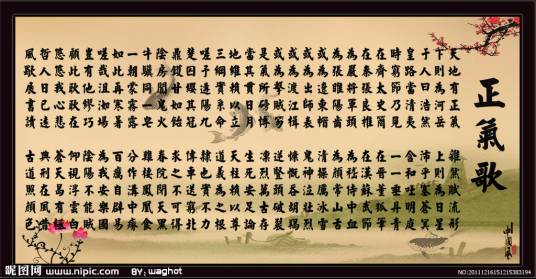 正氣歌
天地有正氣 雜然賦流形
下則為河岳 上則為日星
于人曰浩然 沛乎塞蒼冥
皇路當清夷 含和吐明庭
時窮節乃見 一一垂丹青
在齊太史簡 在晉董狐筆
在秦張良椎 在漢蘇武節
為嚴將軍頭 為嵇侍中血
為張睢陽齒 為顏常山舌
或為遼東帽 清操厲冰雪
或為出師表 鬼神泣壯烈
或為渡江楫 慷慨吞胡羯
或為擊賊笏 逆豎頭破裂
是氣所磅礡 凜烈萬古存
當其貫日月 生死安足論
地維賴以立 天柱賴以尊
三綱實系命 道義為之根
嗟予遘陽九 隸也實不力
楚囚纓其冠 傳車送窮北
鼎鑊甘如飴 求之不可得
陰房闃鬼火 春院閉天黑
牛驥同一皂 雞棲鳳凰食
一朝蒙霧露 分作溝中瘠
如此再寒暑 百癘自辟易
嗟哉沮洳場 為我安樂國
豈有他繆巧 陰陽不能賊
顧此耿耿在 仰視浮雲白
悠悠我心悲 蒼天曷有極
哲人日已遠 典刑在夙昔
風檐展書讀 古道照顏色
中國風
昵图网 www.nipic.com
BY: waghot
NO:20111216151215383194